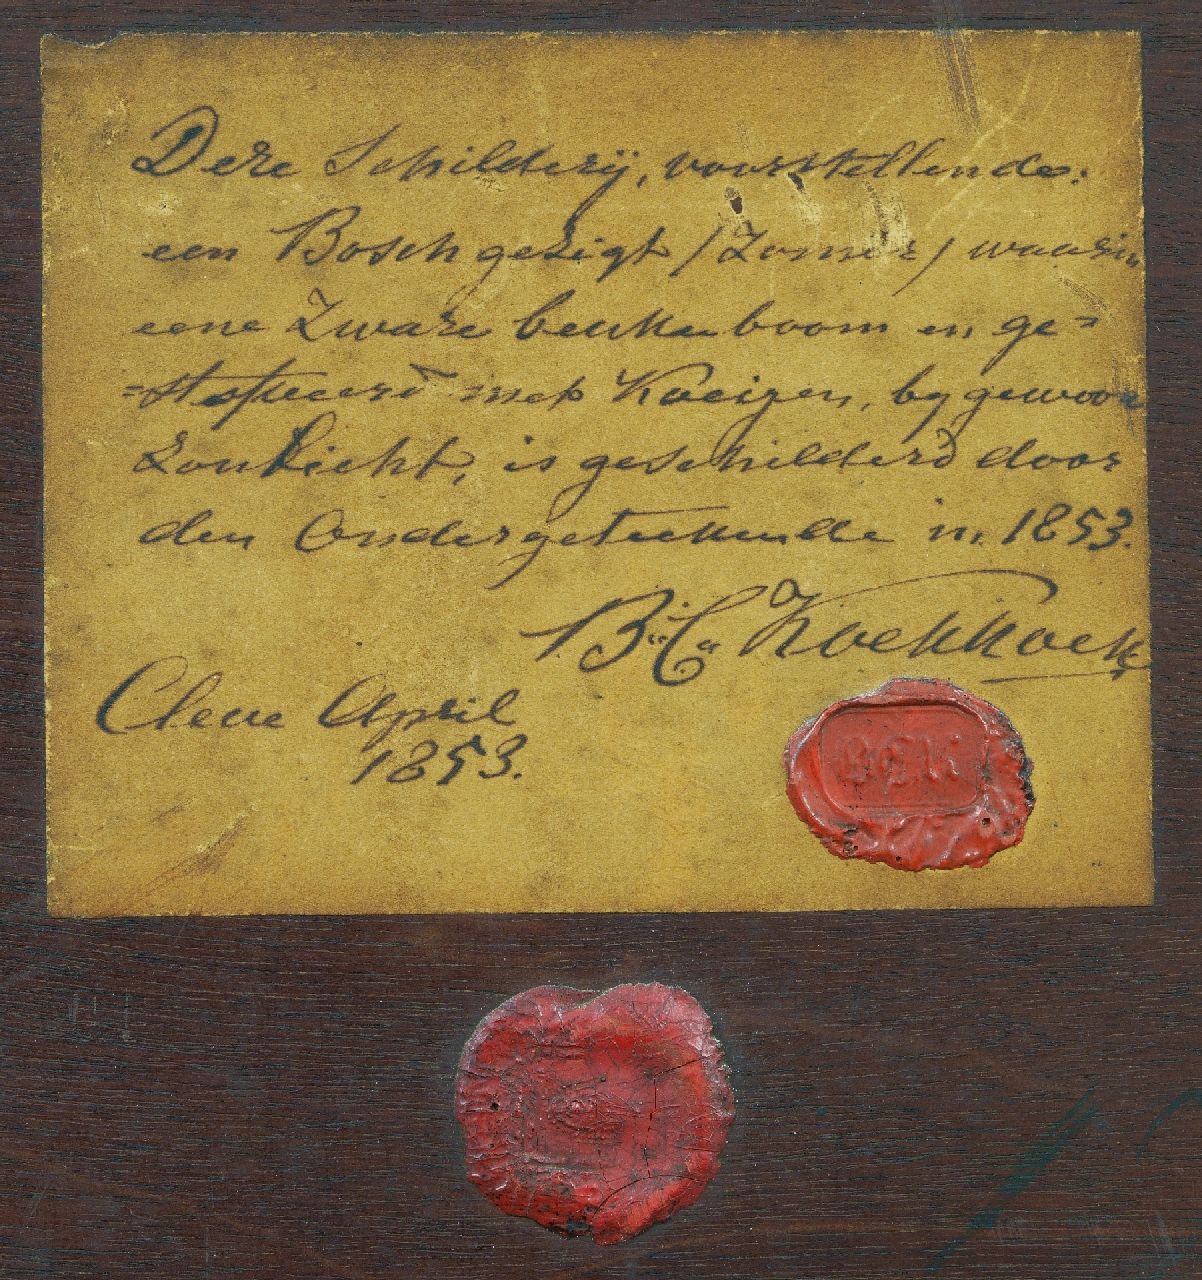 Deze Schilderij, voorstellende:
een Boschgezigt / Zomer / waarin
eene Zware beukenboom en ge=
=stoffeerd met Koeijen, by gewoon
Zonlicht, is geschilderd door
den Ondergeteekende in 1853.
B. C. Koekkoek
Cleve April
1853.
BCK